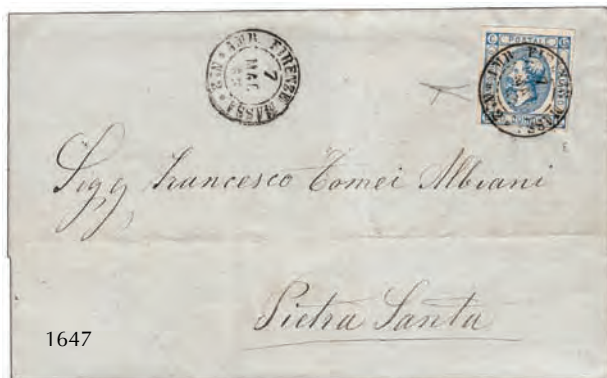 AMB FIRENZE MASSA
7
MAG
63
POSTALE
AMB FI
7
MASSA
Sigg Francesco Tomei Albiani
Pietra Santa
1647